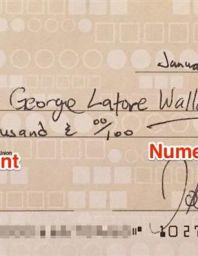 Janua
George Latore Walla
ousand & 00/100
Union
nt Nume
1027